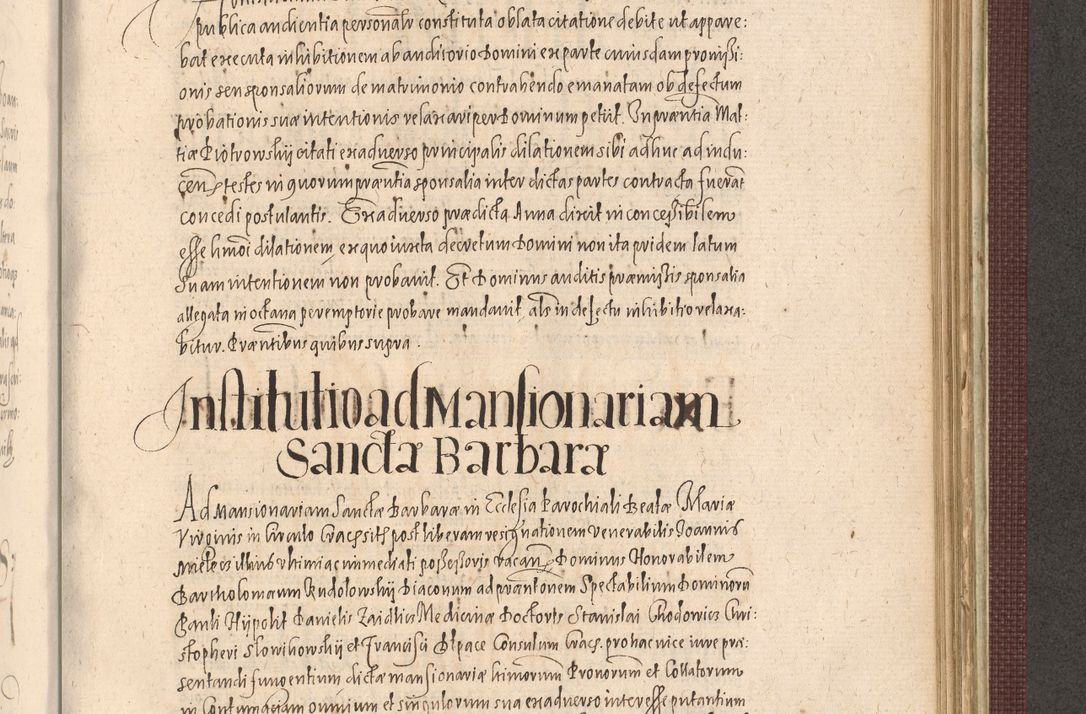 publica audientia personalr constituta oblata citatione debite ut appare:
bat executa inhibitionem ab auditorio Domini ex parte cuiusdam promissi:
onis seu sponsaliorum de matrimonio contrahendo emanatam ob defectum
probationis suæ intentionis relaxari per Dominum petiit. In præntia Mat:
tiæ Piotrowskij citati ex adverso principalis dilationem sibi adhuc ad indu:
cen testes in quorum præntia sponsalia inter dictas partes contracta fuerāt
concedi postulantis. Ex adverso prædicta Anna dixit inconcessibilem
esse hmōi dilationem ex quo iuxta decretum Domini non ita pridem latum
suam intentionem non probavit. Et Dominus auditis præmissis sponsalia
allegata in octava peremptorie probare mandavit, als in defectu inhibitio relaxa:
bitur. Præntibus quibus supra.
Institutio ad Mansionariam
Sanctæ Barbaræ
Ad Mansionariam Sanctæ Barbaræ in Ecclesia Parochiali Beatæ Mariæ
Virginis in Circulo Crac sith post liberam resignationem venerabilis Joannis
illius ultimi ac immediati possessoris vacan Dominus Honorabilem
Bartholomæum Rudolowskij Diaconum ad præntōnem Spectabilium Dominorū
Pauli Hippolit Danielis Zaidlics Medicinæ Doctoris Stanislai Chodowics Chri:
stopheri Slowikowskij et Francisci Delpace Consulum Crac. pro hac vice iure præ:
sentandi fungentium dictæ mansionariæ ltimorum Pronorum et Collatorum
in Contumaciam omnium et singulorum sua ex adverso interesse putantium